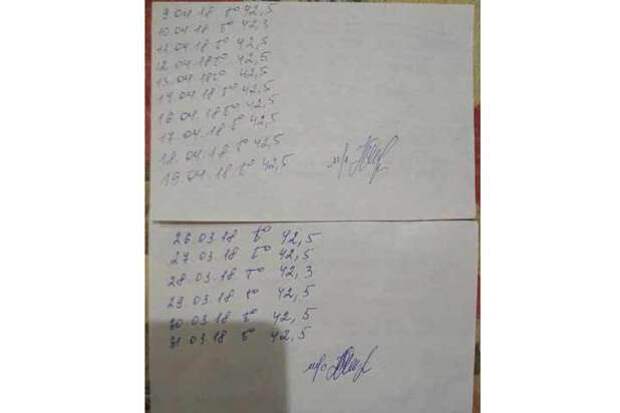 9.04.18 t° 42,5
10.04.18 t° 42,3
11.04.18 t° 42,5
12.04.18 t° 42,5
13.04.18 t° 42,5
14.04.18 t° 42,5
16.04.18 t° 42,5
17.04.18 t° 42,5
18.04.18 t° 42,5
19.04.18 t° 42,5
м/с
26.03.18 t° 42,5
27.03.18 t° 42,5
28.03.18 t° 42,3
29.03.18 t° 42,5
30.03.18 t° 42,5
31.03.18 t° 42,5
м/с